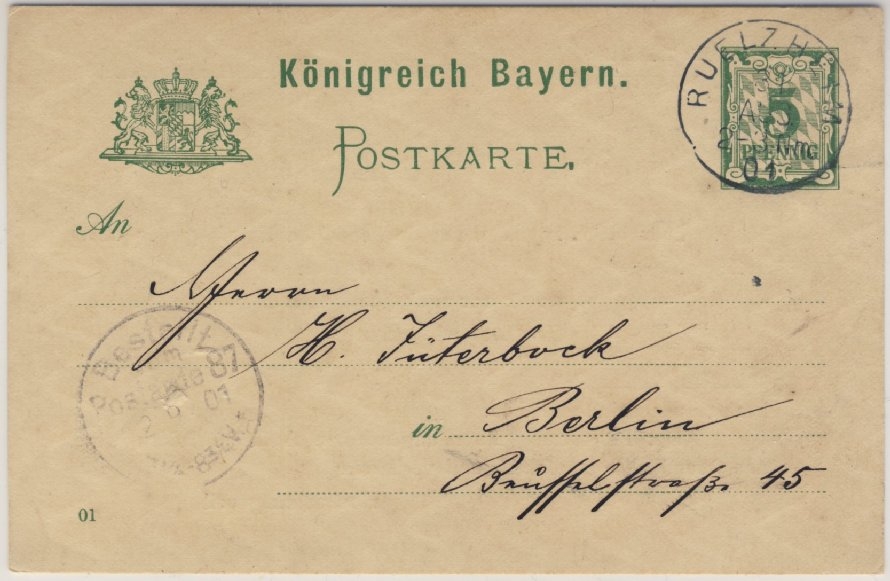 Königreich Bayern.
POSTKARTE.
RUELZHEIM
31
AUG
01
5
PFENNIG
An
Herrn
H. Jüterbock
in Berlin
Beusselstraße 45
Bestellt
Postamte 87
01
01